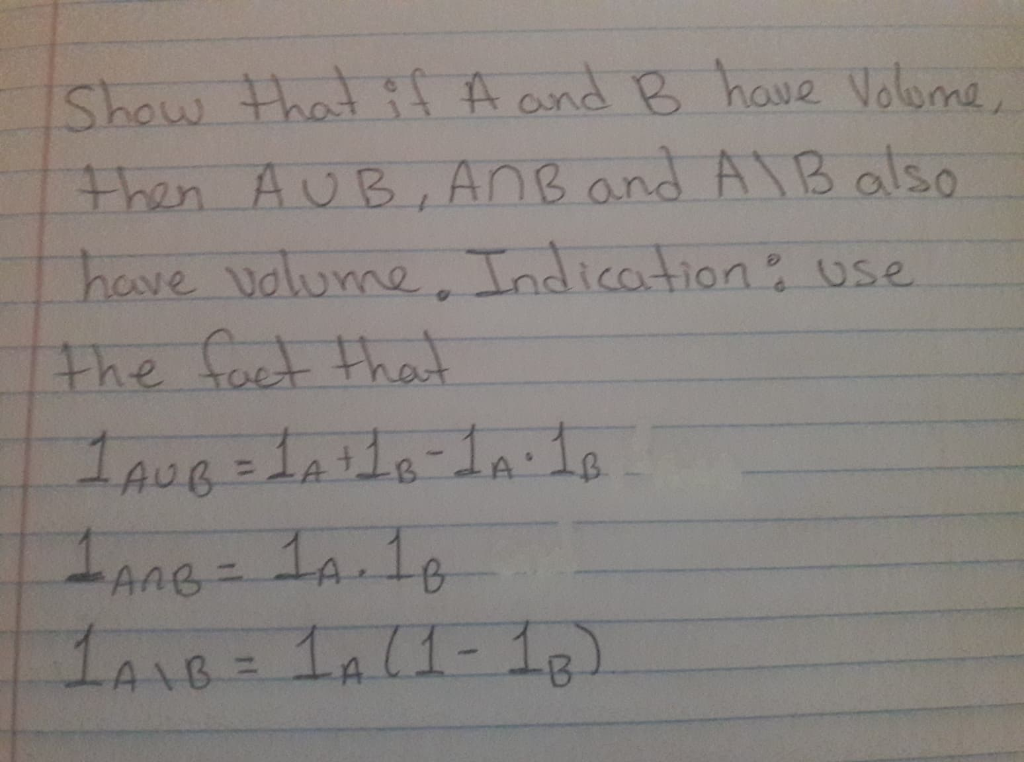 Show that if A and B have Volume,
then A∪B, A∩B and A\B also
have volume. Indication: use
the fact that
1_{A∪B} = 1_A + 1_B - 1_A · 1_B
1_{A∩B} = 1_A . 1_B
1_{A\B} = 1_A (1 - 1_B)